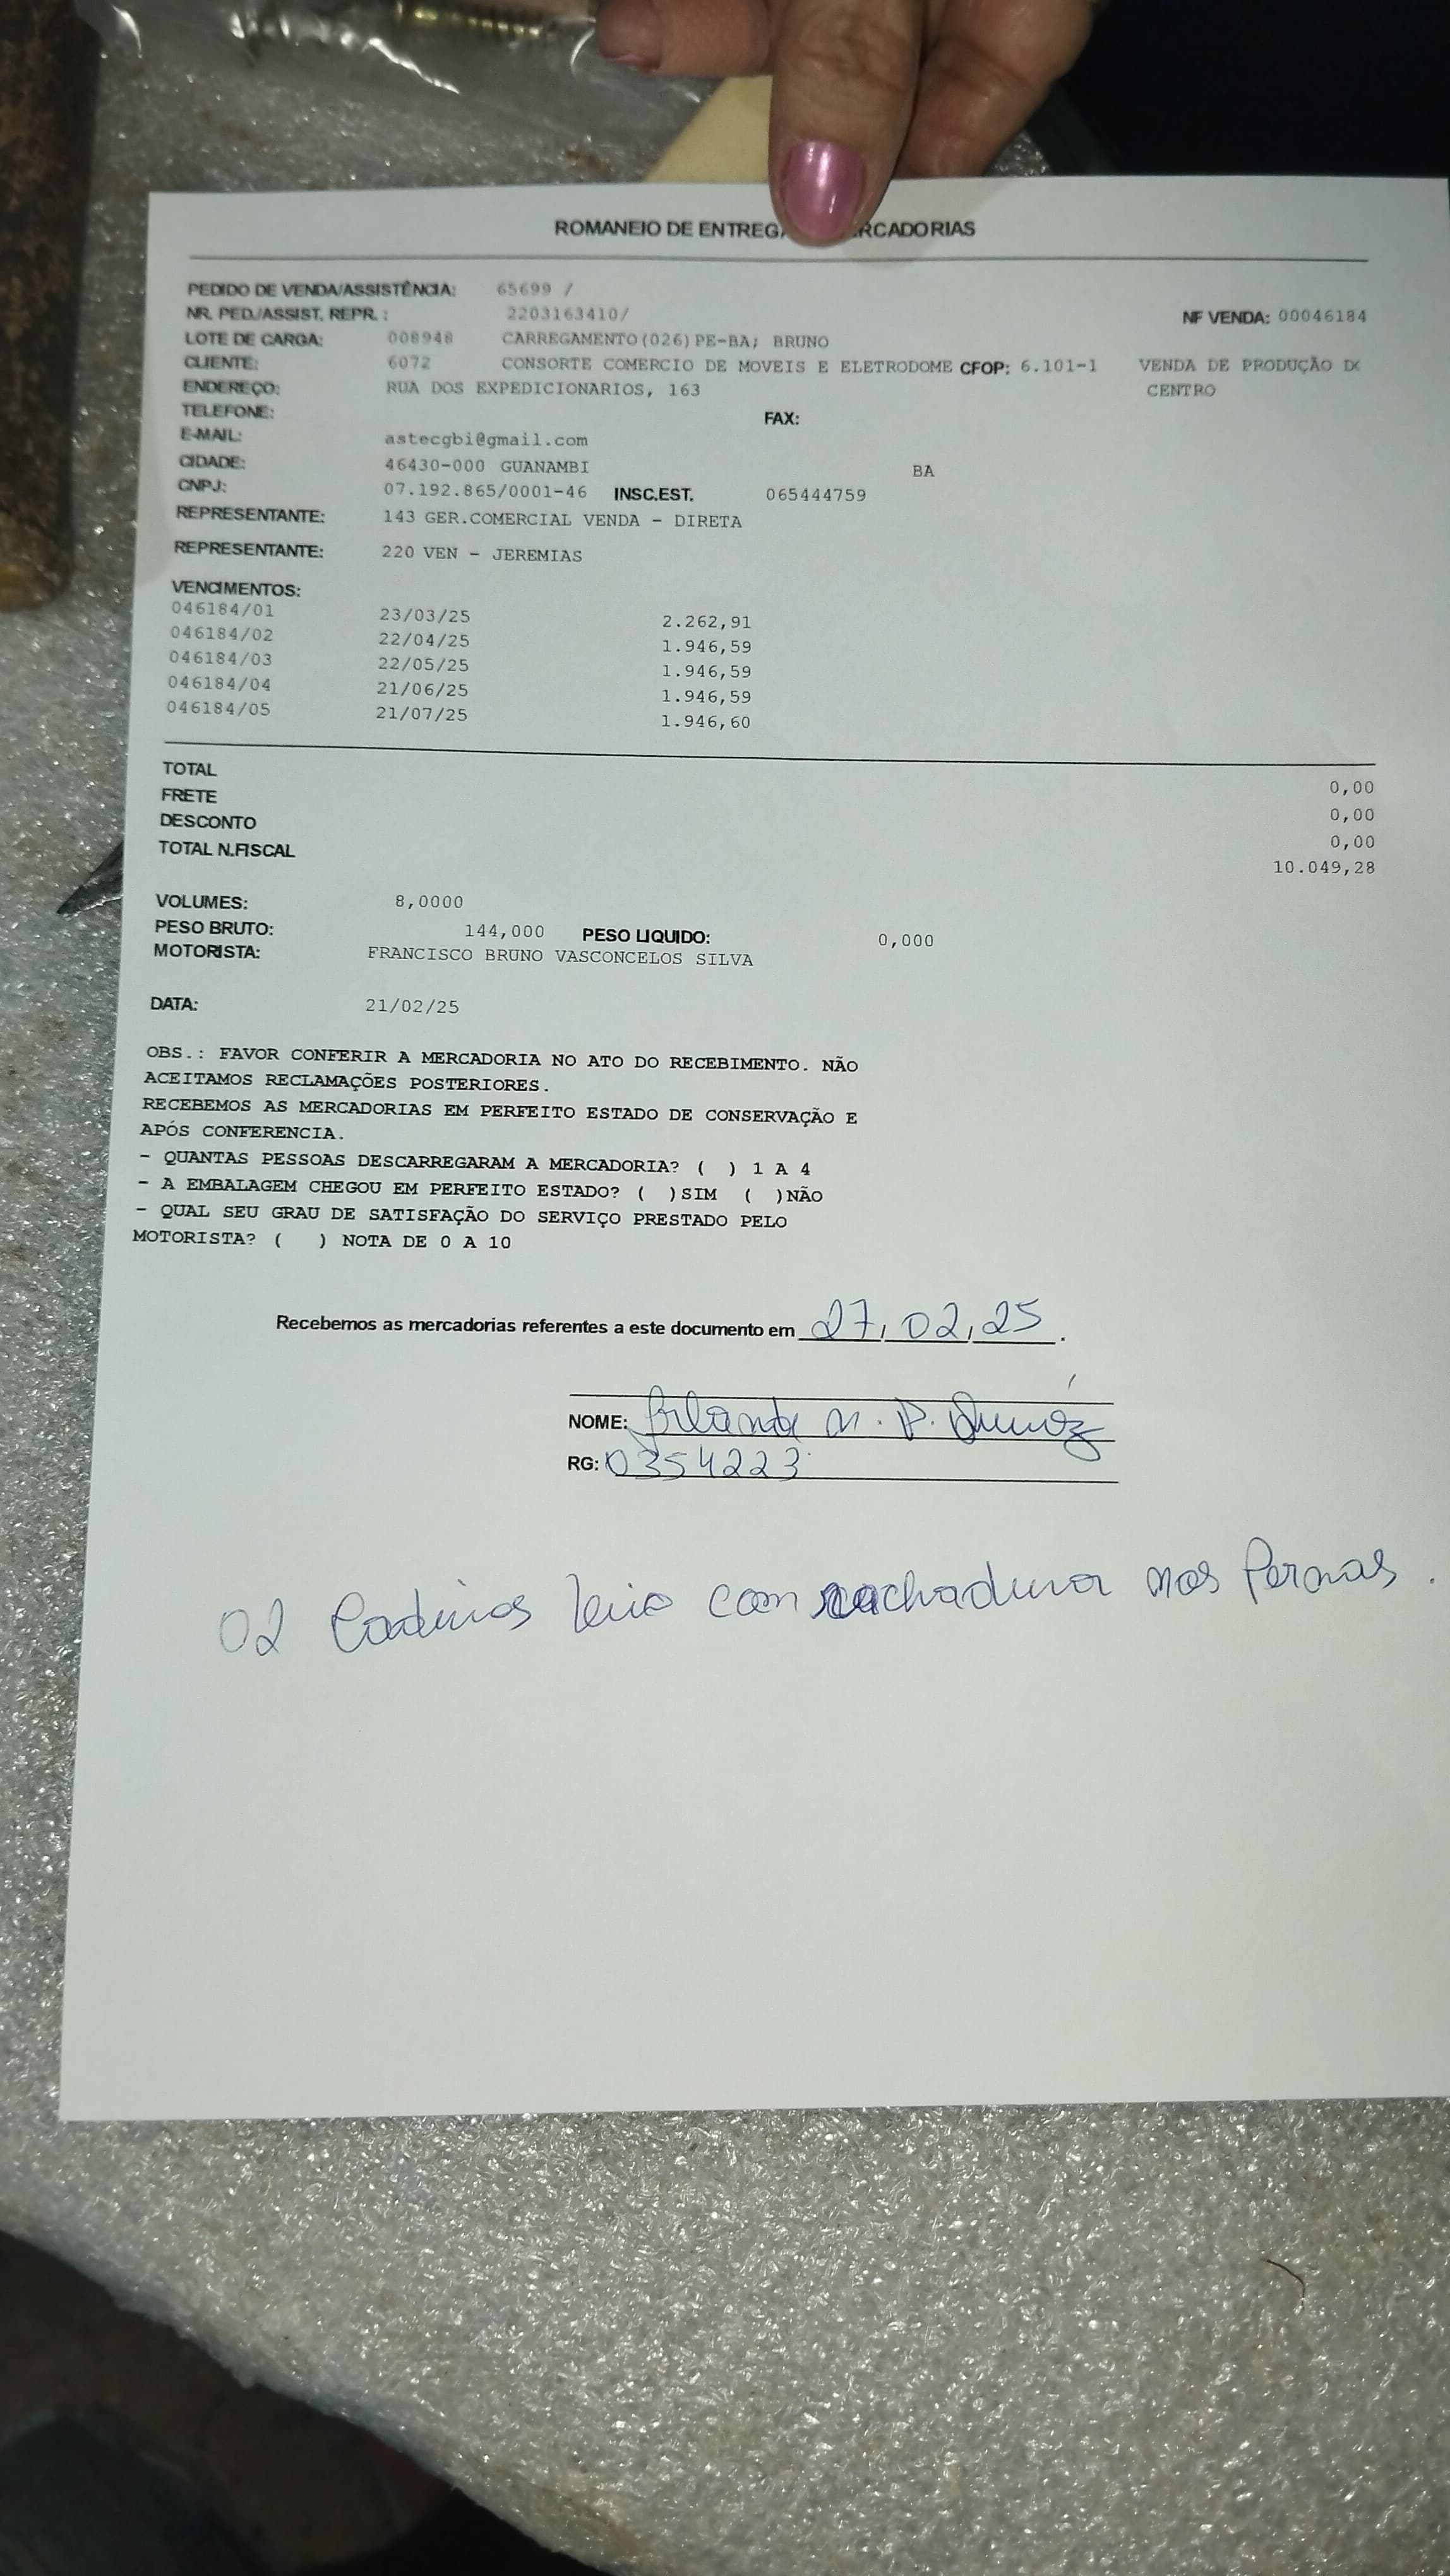 ROMANEIO DE ENTREGA RCADORIAS
PEDIDO DE VENDA/ASSISTÊNCIA: 65699 /
NR. PED./ASSIST. REPR. : 2203163410/ NF VENDA: 00046184
LOTE DE CARGA: 008948 CARREGAMENTO(026)PE-BA; BRUNO
CLIENTE: 6072 CONSORTE COMERCIO DE MOVEIS E ELETRODOME CFOP: 6.101-1 VENDA DE PRODUÇÃO
ENDEREÇO: RUA DOS EXPEDICIONARIOS, 163 CENTRO
TELEFONE: FAX:
E-MAIL: astecgbi@gmail.com
CIDADE: 46430-000 GUANAMBI BA
CNPJ: 07.192.865/0001-46 INSC.EST. 065444759
REPRESENTANTE: 143 GER.COMERCIAL VENDA - DIRETA
REPRESENTANTE: 220 VEN - JEREMIAS
VENCIMENTOS:
046184/01 23/03/25 2.262,91
046184/02 22/04/25 1.946,59
046184/03 22/05/25 1.946,59
046184/04 21/06/25 1.946,59
046184/05 21/07/25 1.946,60
TOTAL 0,00
FRETE 0,00
DESCONTO 0,00
TOTAL N.FISCAL 10.049,28
VOLUMES: 8,0000
PESO BRUTO: 144,000 PESO LIQUIDO: 0,000
MOTORISTA: FRANCISCO BRUNO VASCONCELOS SILVA
DATA: 21/02/25
OBS.: FAVOR CONFERIR A MERCADORIA NO ATO DO RECEBIMENTO. NÃO
ACEITAMOS RECLAMAÇÕES POSTERIORES.
RECEBEMOS AS MERCADORIAS EM PERFEITO ESTADO DE CONSERVAÇÃO E
APÓS CONFERENCIA.
- QUANTAS PESSOAS DESCARREGARAM A MERCADORIA? ( ) 1 A 4
- A EMBALAGEM CHEGOU EM PERFEITO ESTADO? ( )SIM ( )NÃO
- QUAL SEU GRAU DE SATISFAÇÃO DO SERVIÇO PRESTADO PELO
MOTORISTA? ( ) NOTA DE 0 A 10
Recebemos as mercadorias referentes a este documento em 27,02,25.
NOME: M. P.
RG: 0354223
02 Cadeiras com rachadura nas Pernas.